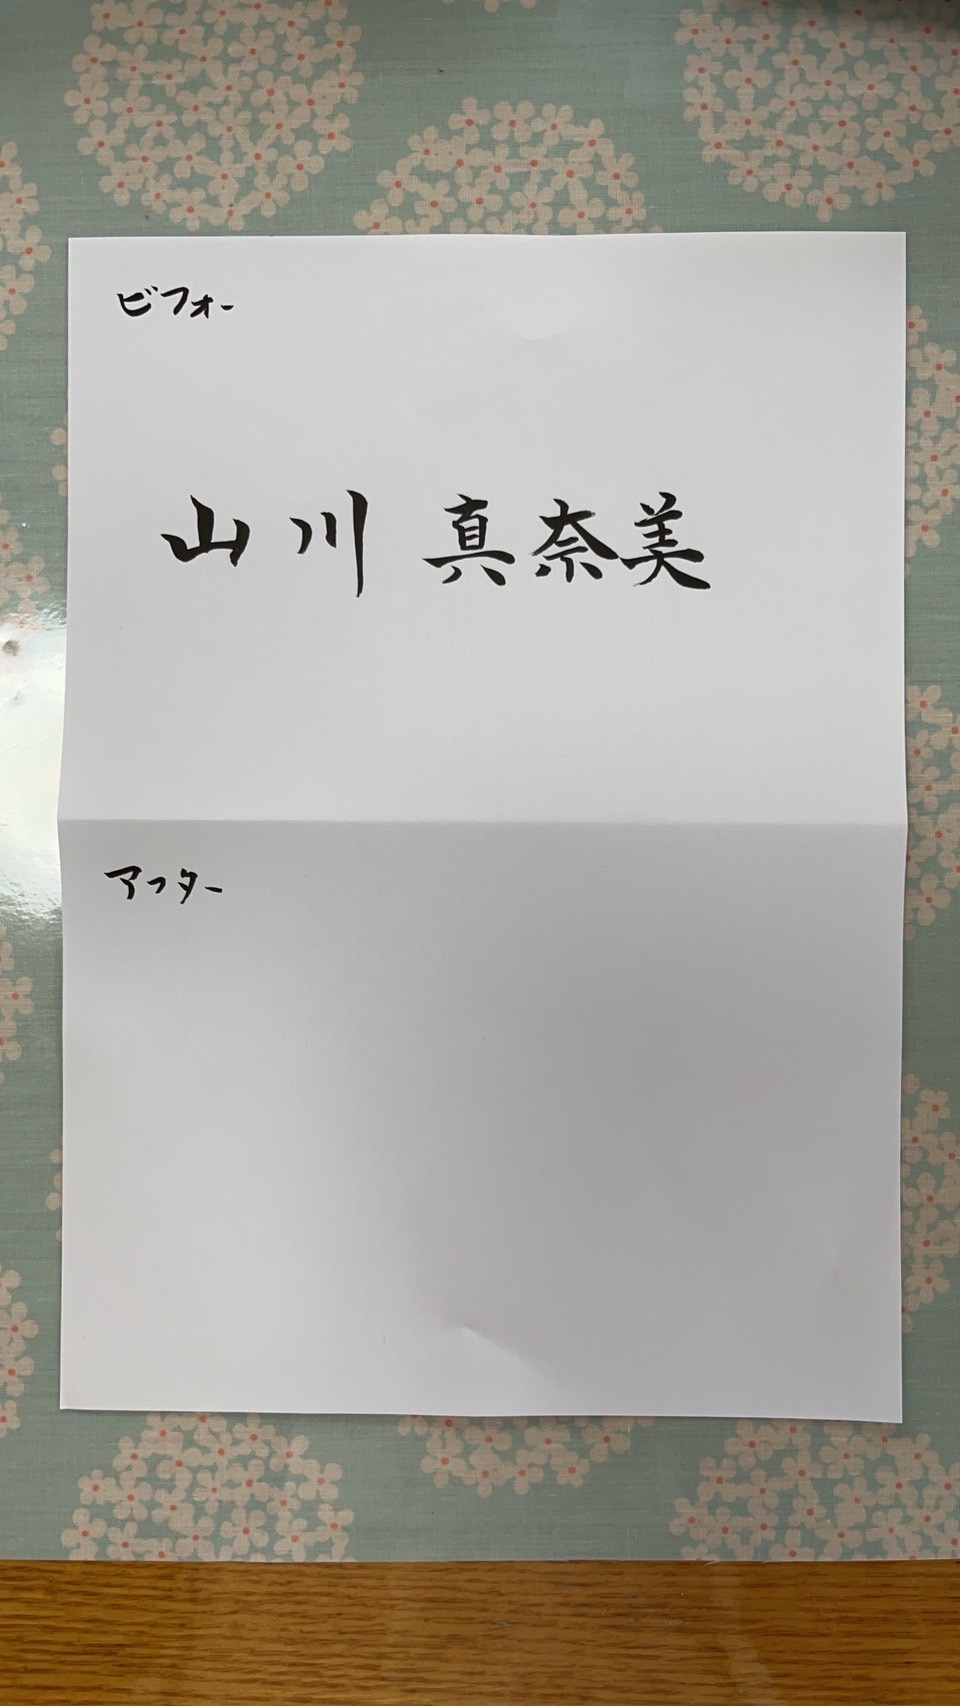 ビフォー
山川 真奈美
アフター